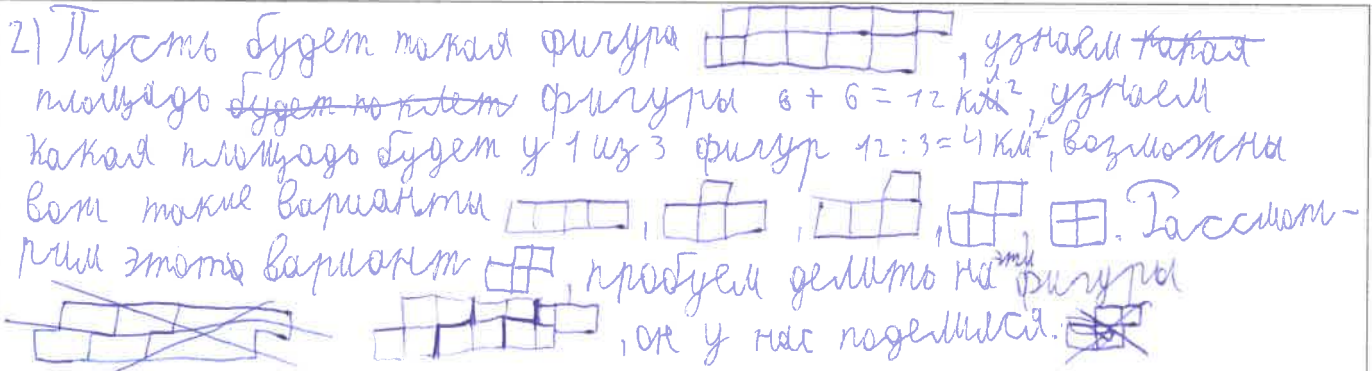 2) Пусть будет такая фигура , узнаем какая
площадь будет по клет фигуры 6 + 6 = 12 км², узнаем
какая площадь будет у 1 из 3 фигур 12 : 3 = 4 км², возможны
вот такие варианты , , , , . Рассмот-
рим этот вариант , пробуем делить на эти фигуры
, он у нас поделился.